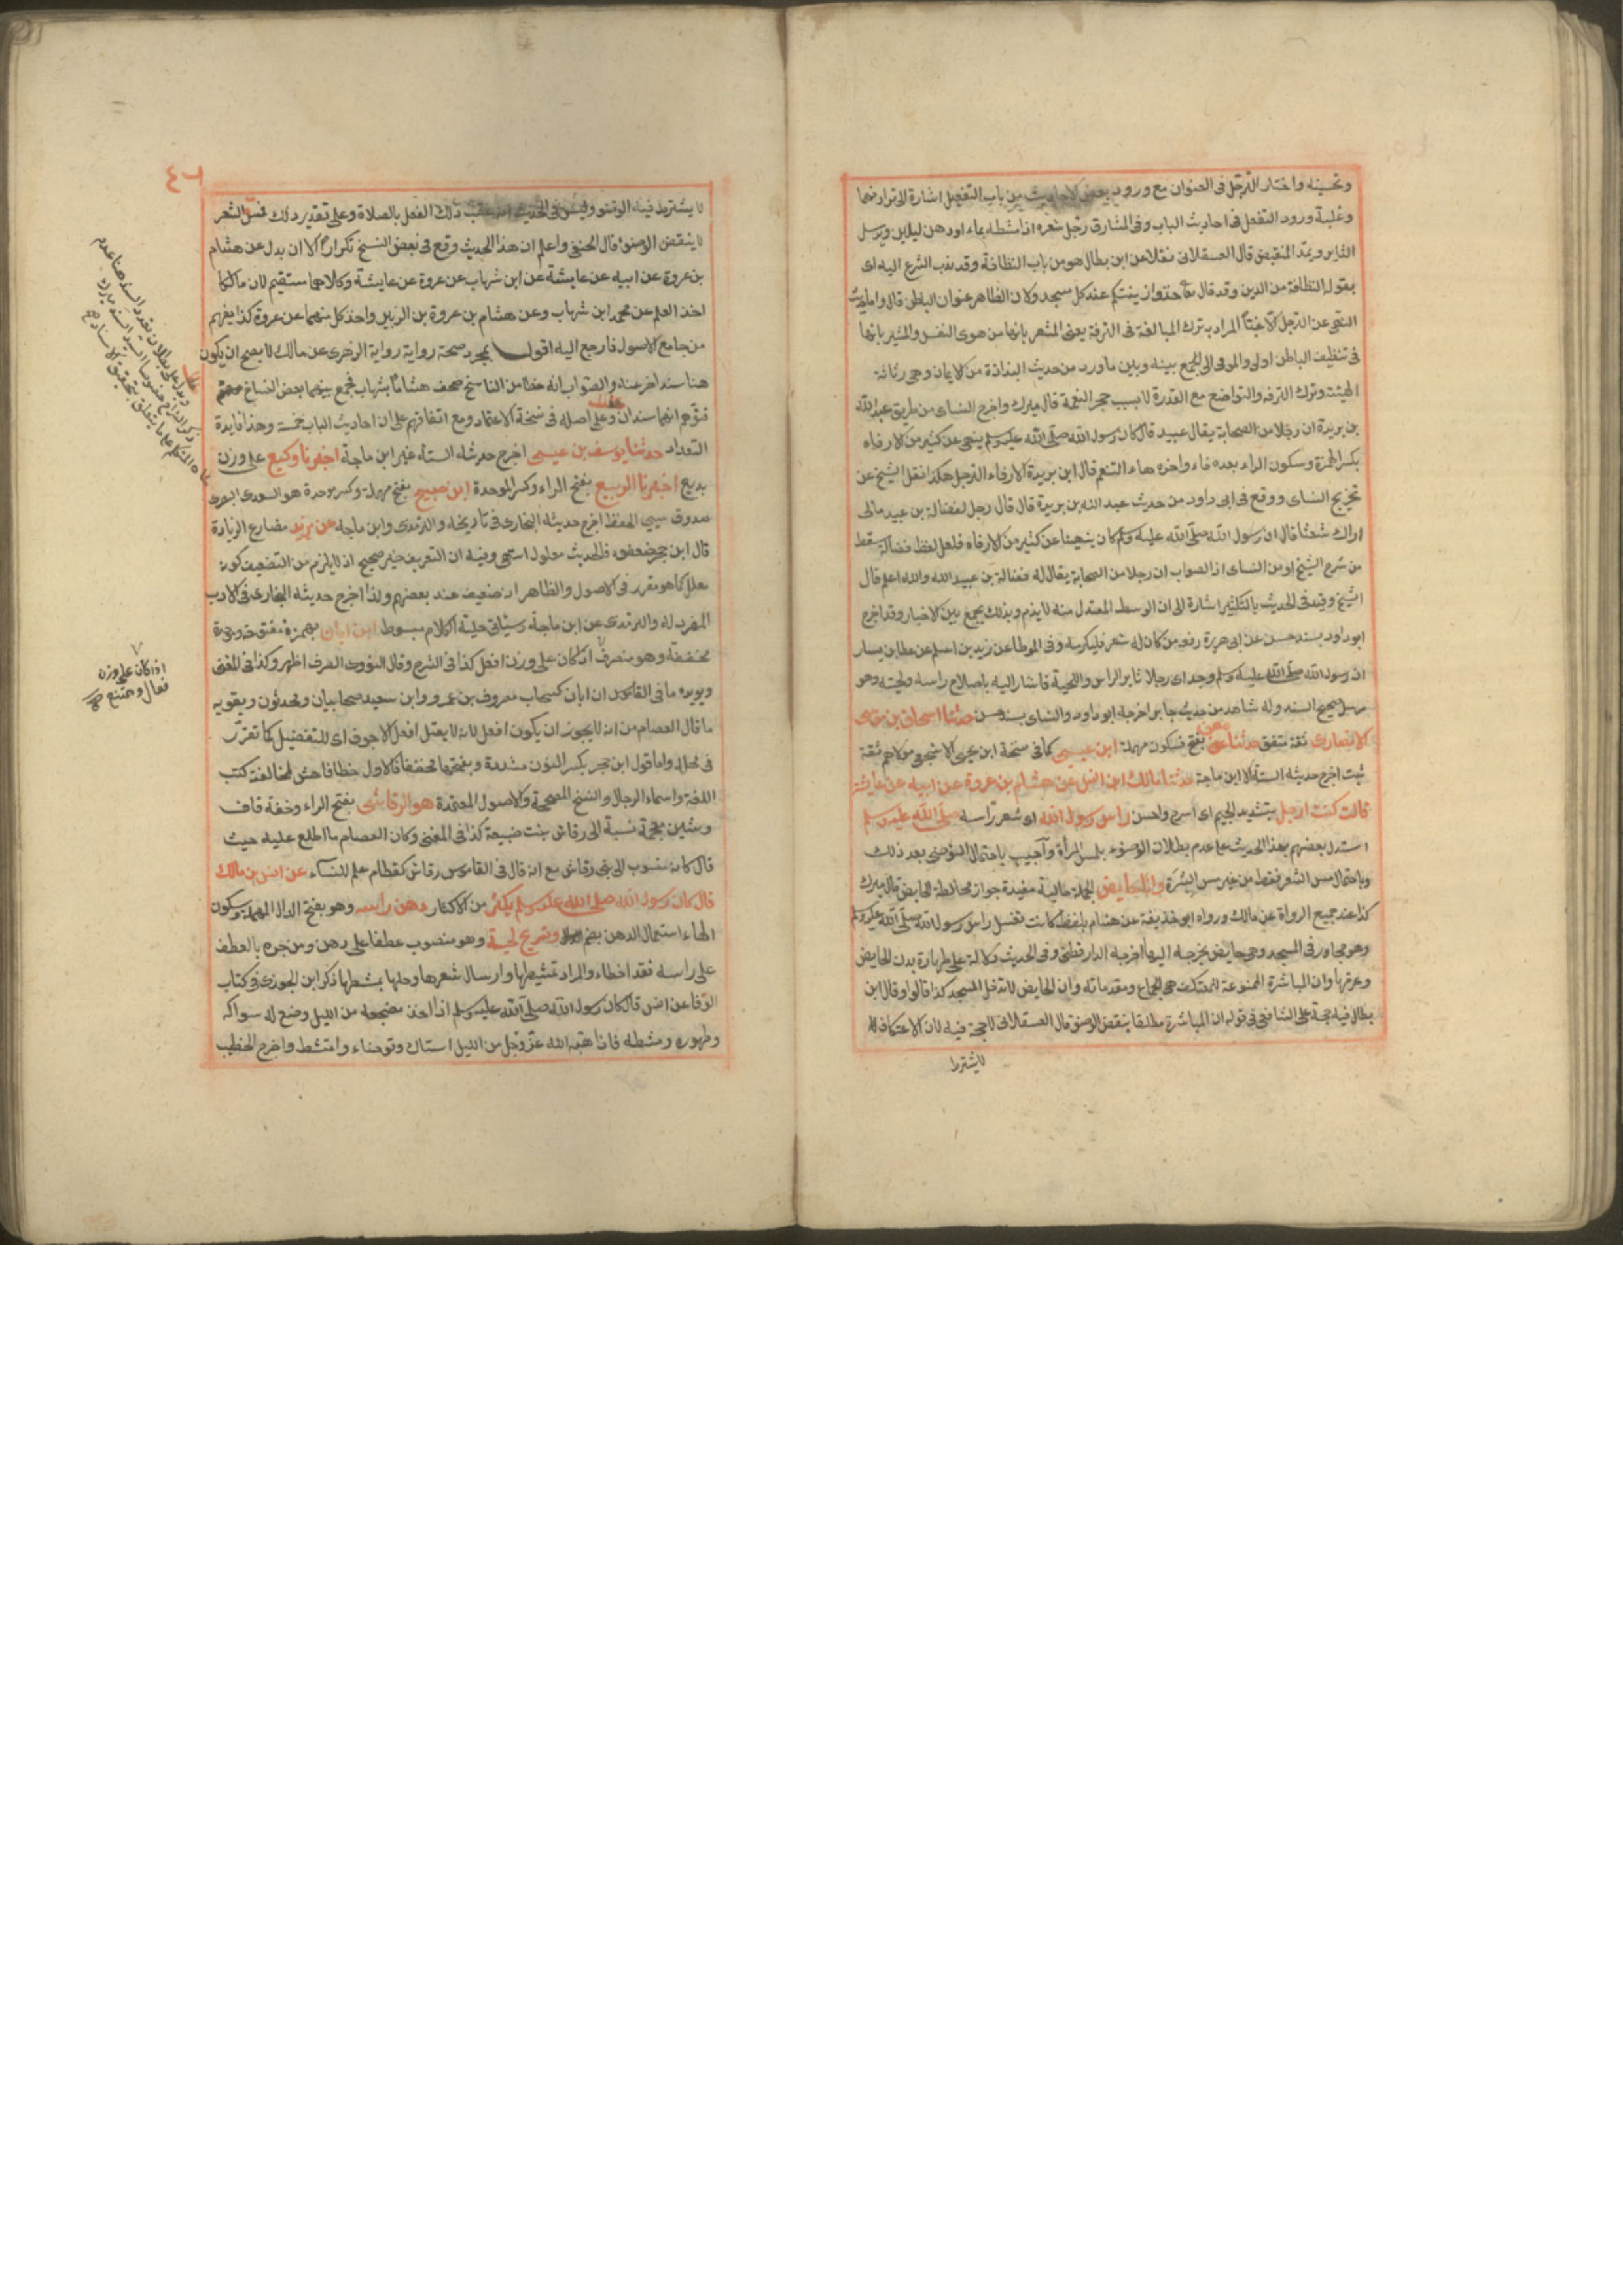 وتحسينه واختار الترجل في العنوان مع ورود بعض الاحاديث من باب التفعيل اشارة الى ترادفهما
وغلبة ورود التفعل في احاديث الباب وفي المشارق رجل شعره اذا مشطه بماء او دهن ليلين ويرسل
الثاير ويمد المنقبض قال العسقلاني نقلا عن ابن بطال هو من باب النظافة وقد ندب الشرع اليه اي
بقوله النظافة من الدين وقد قال تعا خذوا زينتكم عند كل مسجد ولان الظاهر عنوان الباطن قال واما حديث
النهي عن الترجل الا غبّا المراد به ترك المبالغة في الترفة يعني المشعر بانها من هوى النفس والمشير بانها
في تنظيف الباطن اولى والموفى الى الجمع بينه وبين ماورد من حديث البذاذة من الايمان وهي رثاثة
الهيئة وترك الترفه والتواضع مع القدرة لا بسبب جحر النعمة قال ميرك واخرج النساى من طريق عبد الله
بن بريدة ان رجلا من الصحابة يقال عبيد قال كان رسول الله صلى الله عليه وسلم ينهى عن كثير من الارفاه
بكسر الهمزة وسكون الراء بعده فاء واخره هاء التنعم قال ابن بريدة الارفاه الترجل هكذا نقل الشيخ عن
تخريج النساى ووقع في ابي داود من حديث عبد الله بن بريدة قال قال رجل لفضالة بن عبيد مالى
اراك شعثا قال ان رسول الله صلى الله عليه وسلم كان ينهينا عن كثير من الارفاه فلعل لفظ فضالة سقط
من شرح الشيخ او من النساى اذ الصواب ان رجلا من الصحابة يقال له فضالة بن عبيد الله والله اعلم قال
الشيخ وقيد في الحديث بالكثير اشارة الى ان الوسط المعتدل منه لا يذم وبذلك يجمع بين الاخبار وقد اخرج
ابو داود بسند حسن عن ابي هريرة رفعه من كان له شعر فليكرمه وفي الموطا عن زيد بن اسلم عن عطا بن يسار
ان رسول الله صلى الله عليه وسلم وجد اى رجلا ثاير الراس واللحية فاشار اليه باصلاح راسه ولحيته وهو
مرسل صحيح السند وله شاهد من حديث جابر اخرجه ابو داود والنساى بسند حسن حدثنا اسحاق بن موسى
الانصارى ثقة متفق حدثنا معن بفتح فسكون مهملة ابن عيسى كما في نسخة ابن يحيى الاشجعي مولاهم ثقة
ثبت اخرج حديثه الستة الا ابن ماجة حدثنا مالك ابن انس عن هشام بن عروة عن ابيه عن عايشة
قالت كنت ارجل بتشديد الجيم اى اسرح واحسن راس رسول الله اى شعر راسه صلى الله عليه وسلم
استدل بعضهم بهذا الحديث على عدم بطلان الوضوء بلمس المرأة وأجيب باحتمال التوضى بعد ذلك
وباحتمال مس الشعر فقط من غير مس البشرة وانا حايض الجملة حالية مفيدة جواز مخالطة الحايض قال ميرك
كذا عند جميع الرواة عن مالك ورواه ابو حذيفة عن هشام بلفظ كانت تغسل راس رسول الله صلى الله عليه وسلم
وهو مجاور في المسجد وهي حايض يخرجه اليها اخرجه الدارقطنى وفي الحديث دلالة على طهارة بدن الحايض
وعرقها وان المباشرة الممنوعة للمعتكف هي الجماع ومقدماته وان الحايض لا تدخل المسجد كذا قالوا وقال ابن
بطال فيه حجة على الشافعي في قوله ان المباشرة مطلقا ينقض الوضوء قال العسقلانى لا حجة فيه لان الاعتكاف
لايشترط
٤٦
لا يشترط فيه الوضوء وليس في الحديث انه عقب ذلك الفعل بالصلاة وعلى تقدير ذلك فمس الشعر
لا ينقض الوضوء قال الحنفي واعلم ان هذا الحديث وقع في بعض النسخ تكرارا الا ان بدل عن هشام
بن عروة عن ابيه عن عايشة عن ابن شهاب عن عروة عن عايشة وكلاهما مستقيم لان مالكا
اخذ العلم عن محمد ابن شهاب وعن هشام بن عروة بن الزبير واخذ كل منهما عن عروة كذا يفهم
من جامع الاصول فارجع اليه اقول بمجرد صحة رواية رواية الزهرى عن مالك لا يصح ان يكون
هنا سند اخر عنه والصواب انه خطا من الناسخ صحف هشاما بشهاب فجمع بينهما بعض النساخ
فتوهم انهما سندان وعلى اصله في نسخة الاعتماد ومع اتفاقهم على ان احاديث الباب خمسة وهذا فايدة
التعداد حدثنا يوسف بن عيسى اخرج حديثه الستة غير ابن ماجة اخبرنا وكيع على وزن
بديع اخبرنا الربيع بفتح الراء وكسر الموحدة ابن صبيح بفتح مهملة وكسر موحدة هو السعدى البصرى
صدوق سيئ الحفظ اخرج حديثه البخارى في تاريخه والترمذى وابن ماجه عن يزيد مضارع الزيادة
قال ابن حجر ضعفوه فالحديث معلول انتهى وفيه ان التعريف غير صحيح اذ لا يلزم من التضعيف كونه
معللا كما هو مقرر في الاصول والظاهر انه ضعيف عند بعضهم ولذا اخرج حديثه البخارى في الادب
المفرد له والترمذى عن ابن ماجة وسيأتى حلية الكلام مبسوط ابن ابان بهمزة مفتوحة وموحدة
مخففة وهو منصرف ان كان على وزن افعل كذا في الشرح وقال النووى الصرف اظهر وكذا في المغنى
ويويده ما في القاموس ان ابان كسحاب معروف بن عمرو وابن سعيد صحابيان ومحدثون ويقويه
ما قال العصام من انه لا يجوز ان يكون افعل لانه لا يعتل افعل الاجوف اى للتفضيل كما تقرر
في محله واما قول ابن حجر بكسر النون مشددة وبفتحها مخففا فالاول خطا فاحش لمخالفة كتب
اللغة واسماء الرجال والنسخ المصححة والاصول المعتمدة هو الرقاشى بفتح الراء وخفة قاف
وشين معجمة نسبة الى رقاش بنت ضبيعة كذا في المغنى وكان العصام ما اطلع عليه حيث
قال كانه منسوب الى بنى رقاش مع انه قال في القاموس رقاش كقطام علم للنساء عن انس بن مالك
قال كان رسول الله صلى الله عليه وسلم يكثر من الاكثار دهن راسه وهو بفتح الدال المهملة وسكون
الهاء استعمال الدهن بضم الدال وتسريح لحيته وهو منصوب عطفا على دهن ومن جره بالعطف
على راسه فقد اخطاء والمراد تمشيطها وارسال شعرها وحلها بمشطها ذكر ابن الجوزى في كتاب
الوفا عن انس قال كان رسول الله صلى الله عليه وسلم اذا اخذ مضجعه من الليل وضع له سواكه
وطهوره ومشطه فاذا هبه الله عز وجل من الليل استاك وتوضاء وامتشط واخرج الخطيب
اذا كان على وزن
فعال ويمتنع